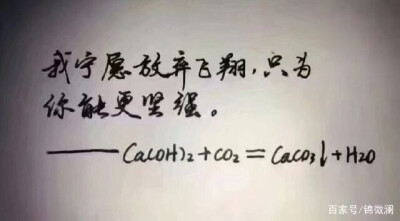 我宁愿放弃飞翔,只为
你能更坚强。
——Ca(OH)2+CO2=CaCO3↓+H2O
百家号/锦微澜